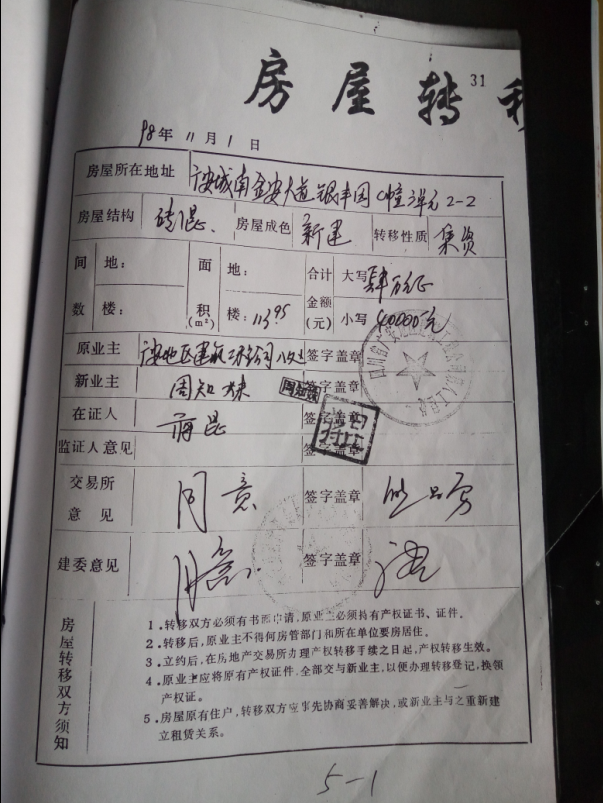 31
房屋转移
98年11月1日
房屋所在地址 广安城南金安大道银丰园C幢3单元2-2
房屋结构 砖混、 房屋成色 新建 转移性质 集资
间 地： 面 地： 合计 大写 肆万元正
数 楼： 积(m²) 楼：113.95 金额(元) 小写 40000元
原业主 广安地区建筑工程公司八处 签字盖章
新业主 周知 签字盖章
在证人 蒋昆 签字盖章
监证人意见 签字盖章
交易所意见 同意 签字盖章
建委意见 同意 签字盖章
房屋转移双方须知
1．转移双方必须有书面申请，原业主必须持有产权证书、证件。
2．转移后，原业主不得何房管部门和所在单位要房居住。
3．立约后，在房地产交易所办理产权转移手续之日起，产权转移生效。
4．原业主应将原有产权证件．全部交与新业主，以便办理转移登记，换领
产权证。
5．房屋原有住户，转移双方应事先协商妥善解决，或新业主与之重新建
立租赁关系。
5-1